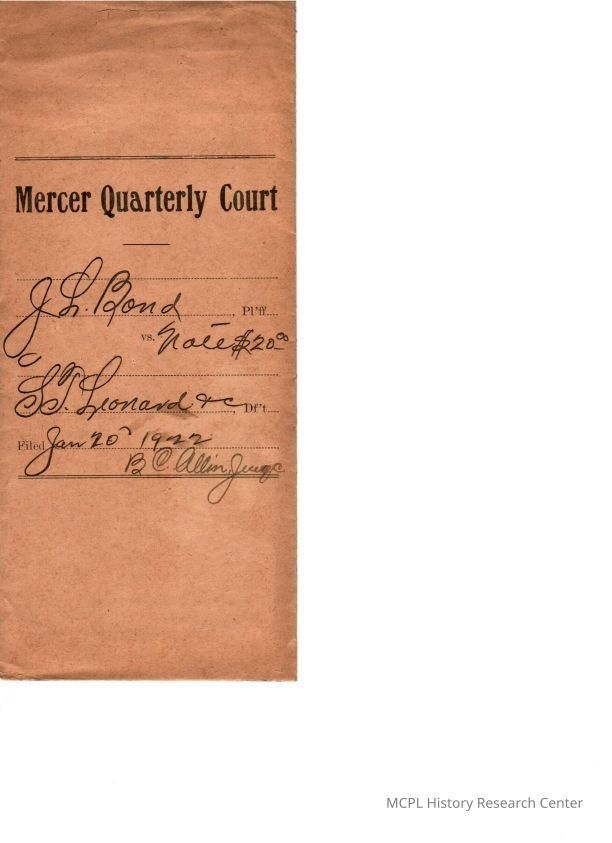 Mercer Quarterly Court
J. L. Bond, Pl'ff.
vs. Note $20.00
S. T. Leonard &c, Df't.
Filed Jan 20 1922
B. C. Allin, Judge
MCPL History Research Center